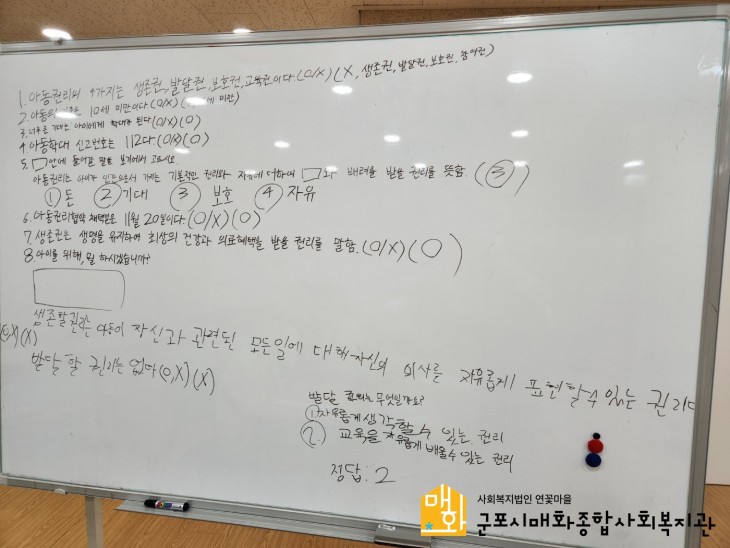 1. 아동권리의 4가지는 생존권, 발달권, 보호권, 교육권이다.(O/X)(X, 생존권, 발달권, 보호권, 참여권)
2. 아동의 10세 미만이다.(O/X)( 미만)
3. 너무 큰 기대는 아이에게 학대가 된다(O/X)(O)
4. 아동학대 신고번호는 112다(O/X)(O)
5. □안에 들어갈 말을 보기에서 고르시오
아동권리는 아이가 인간으로서 가지는 기본적인 권리와 자유에 더하여 □와 배려를 받을 권리를 뜻함. (③)
① 돈 ② 기대 ③ 보호 ④ 자유
6. 아동권리협약 채택일은 11월 20일이다.(O/X)(O)
7. 생존권은 생명을 유지하며 최상의 건강과 의료혜택을 받을 권리를 말함.(O/X)(O)
8. 아이를 위해, 뭘 하시겠습니까?
생존할권리는 아동이 자신과 관련된 모든일에 대해 자신의 의사를 자유롭게 표현할수 있는 권리다
(O,X)(X)
발달 할 권리는 없다(O,X)(X)
발달 권리는 무엇일까요?
1. 자유롭게 생각할 수 있는 권리
2. 교육을 자유롭게 배울 수 있는 권리
정답: 2
매화
사회복지법인 연꽃마을
군포시매화종합사회복지관